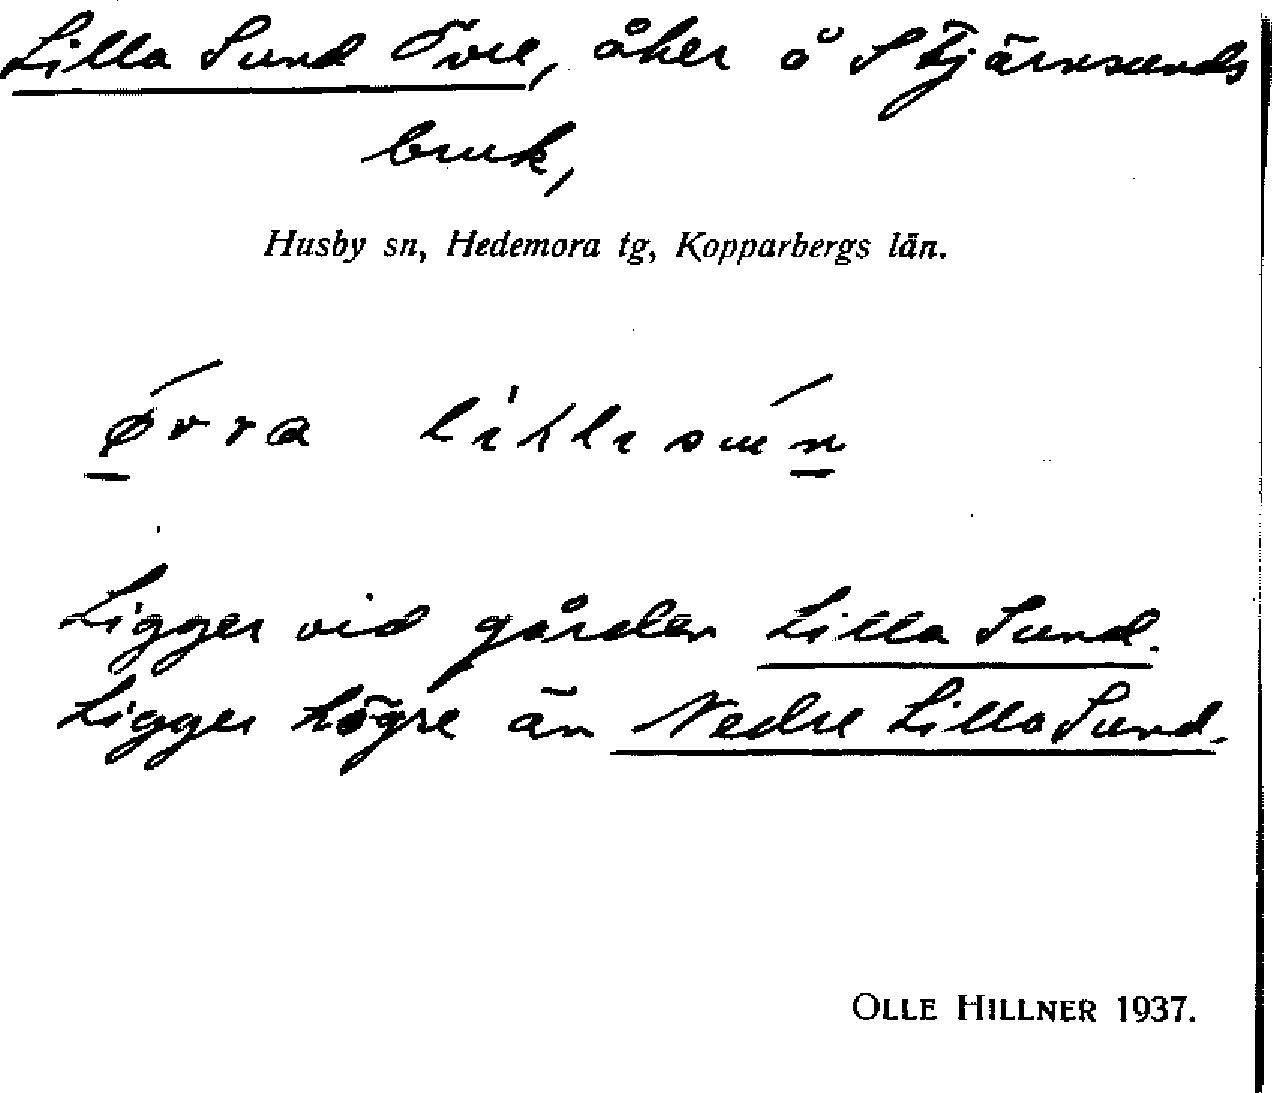 Lilla Sund Övre, åker å Stjärnsunds
bruk,
Husby sn, Hedemora tg, Kopparbergs län.
Ligger vid gården Lilla Sund.
Ligger högre än Nedre Lilla Sund.
OLLE HILLNER 1937.